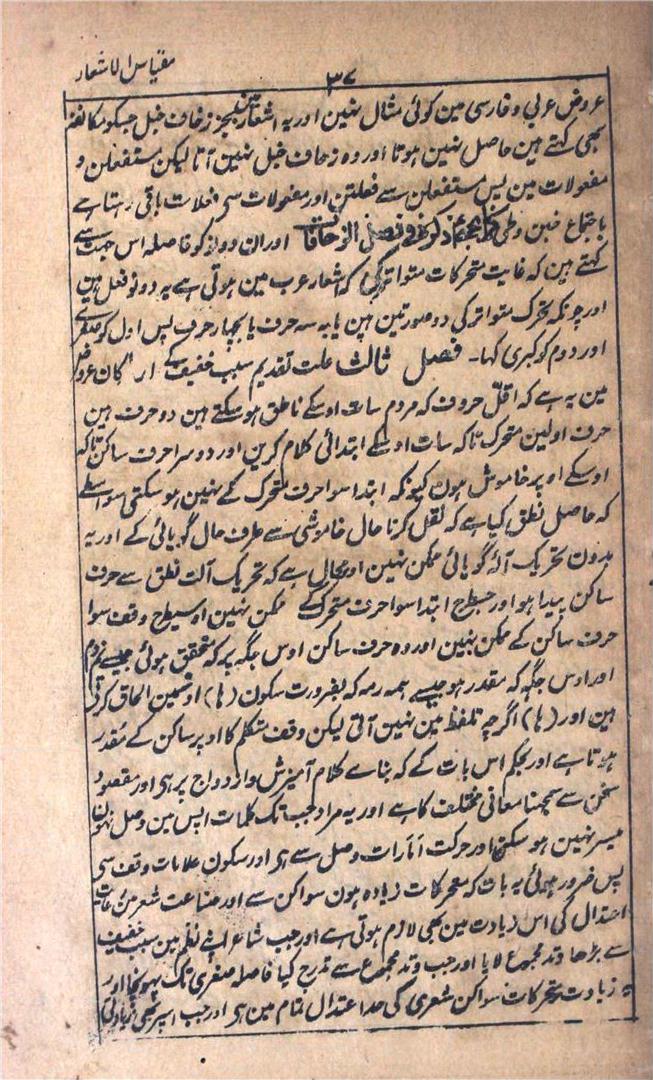 مقیاس الاشعار
۳۷
عروض عربی و فارسی مین کوئی مثال نہین اور یہ اشعار زحاف خبل جسکو مکانفہ
بھی کہتے ہین حاصل نہین ہوتا اور وہ زحاف خبل نہین آتا لیکن مستفعلن و
مفعولات مین پس مستفعلن سے فعلتن اور مفعولات سی فعلات باقی رہتا ہے
باجتماع خبن و طی اور ان دونو کو فاصلہ اس جہت سے
کہتے ہین کہ غایت متحرکات متواترکی کہ اشعار عرب مین ہوتی ہے یہ دونو فعل ہین
اور چونکہ تحرک متواتر کی دو صورتین ہین یا بہ سہ حرف یا بچہار حرف پس اول کو صغری
اور دوم کو کبری کہا۔ فصل ثالث علت تقدیم سبب خفیف کے ارکان عروض
مین یہ ہے کہ اقل حروف کہ مردم سات اوسکے ناطق ہو سکتے ہین دو حرف ہین
حرف اولین متحرک تاکہ سات اوسکے ابتدائی کلام کرین اور دوسرا حرف ساکن تاکہ
اوسکے اوپر خاموش ہون کیونکہ ابتدا سوا حرف متحرک کے نہین ہو سکتی اسواسطے
کہ حاصل نطق کیا ہے کہ نقل کرنا حال خاموشی سے طرف حال گویائی کے اور یہ
بدون تحریک آلۂ گویائی ممکن نہین اور محال ہے کہ تحریک آلت نطق سے حرف
ساکن پیدا ہو اور جسطرح ابتدا سوا حرف متحرک کے ممکن نہین اوسیطرح وقف سوا
حرف ساکن کے ممکن نہین اور وہ حرف ساکن اوس جگہ پر کہ متحقق ہوئی جیسے
اور اوس جگہ کہ مقدر ہو جیسے ہمہ رمہ کہ بضرورت سکون (ہا) اوسمین الحاق کرتی
ہین اور (ہا) اگرچہ تلفظ مین نہین آتی لیکن وقف متکلم کا اوپر ساکن کے مقدر
ہوتا ہے اور بحکم اس بات کے کہ بناے کلام آمیزش و ازدواج پر ہی اور مقصود
سخن سے سمجھنا معانی مختلف کا ہے اور یہ مراد جب تک کلمات اپس مین وصل نہون
میسر نہین ہو سکتی اور حرکت امارات وصل سے ہی اور سکون علامات وقف سی
پس ضرور ہوئی یہ بات کہ متحرکات زیادہ ہون سواکن سے اور صناعت شعر مین رعایت
اعتدال کی اس زیادت مین بھی لازم ہوتی ہے اور جب شاعر اپنے نظم مین سبب خفیف
سے بڑھا وتد مجموع لایا اور جب وتد مجموع سے تدرج کیا فاصلہ صغری تک پہونچا اور
یہ زیادت متحرکات سواکن شعری کی حد اعتدال تمام مین ہی اور جب اسپر بھی زیادتی